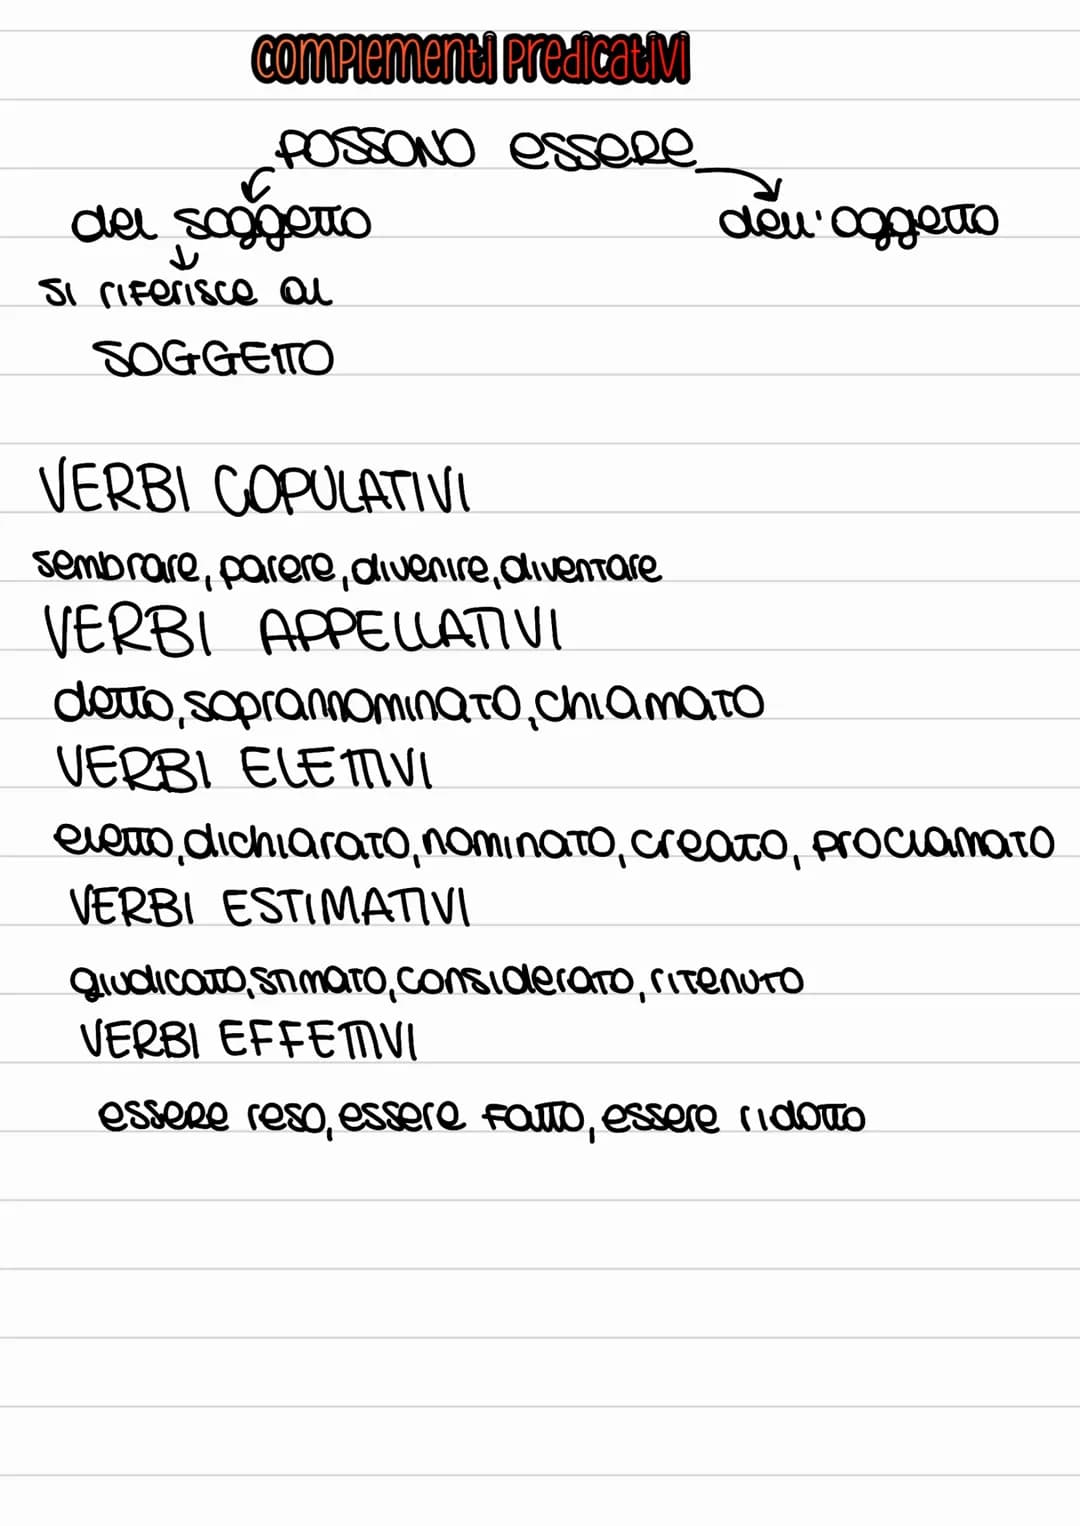 complementi predicativi
POSSONO essere
del soggetto dell'oggetto
si riferisce al
SOGGETTO
VERBI COPULATIVI
sembrare, parere, divenire, diventare
VERBI APPELLATIVI
detto, soprannominato, chiamato
VERBI ELETTIVI
eletto, dichiarato, nominato, creato, proclamato
VERBI ESTIMATIVI
giudicato, stimato, considerato, ritenuto
VERBI EFFETTIVI
essere reso, essere fatto, essere ridotto